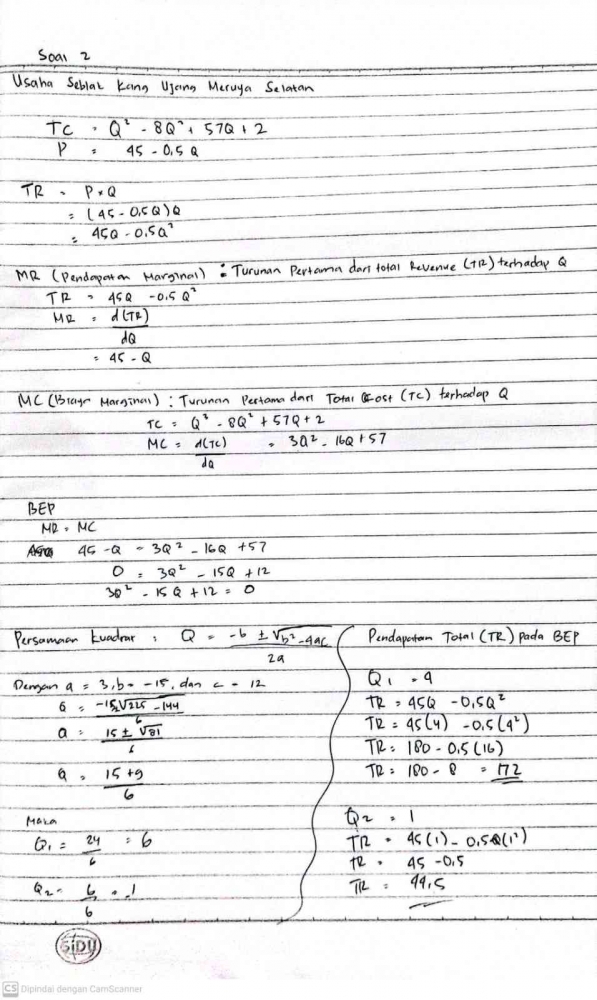 Soal 2
Usaha Seblak Kang Ujang Meruya Selatan
TC = Q³ - 8Q² + 57Q + 2
P = 45 - 0,5 Q
TR = P × Q
= (45 - 0,5Q)Q
= 45Q - 0,5Q²
MR (Pendapatan Marginal) : Turunan Pertama dari total Revenue (TR) terhadap Q
TR = 45Q - 0,5 Q²
MR = d(TR)
dQ
= 45 - Q
MC (Biaya Marginal) : Turunan Pertama dari Total Cost (TC) terhadap Q
TC = Q³ - 8Q² + 57Q + 2
MC = d(TC) = 3Q² - 16Q + 57
dQ
BEP
MR = MC
45 - Q = 3Q² - 16Q + 57
0 = 3Q² - 15Q + 12
3Q² - 15Q + 12 = 0
Persamaan kuadrat : Q = -b ± √b² - 4ac
2a
Dengan a = 3, b = -15, dan c = 12
Q = -15 ± √225 - 144
6
Q = 15 ± √81
6
Q = 15 + 9
6
Maka
Q₁ = 24 = 6
6
Q₂ = 6 = 1
6
Pendapatan Total (TR) pada BEP
Q₁ = 4
TR = 45Q - 0,5Q²
TR = 45(4) - 0,5(4²)
TR = 180 - 0,5(16)
TR = 180 - 8 = 172
Q₂ = 1
TR = 45(1) - 0,5(1²)
TR = 45 - 0,5
TR = 44,5
SIDU
CS Dipindai dengan CamScanner